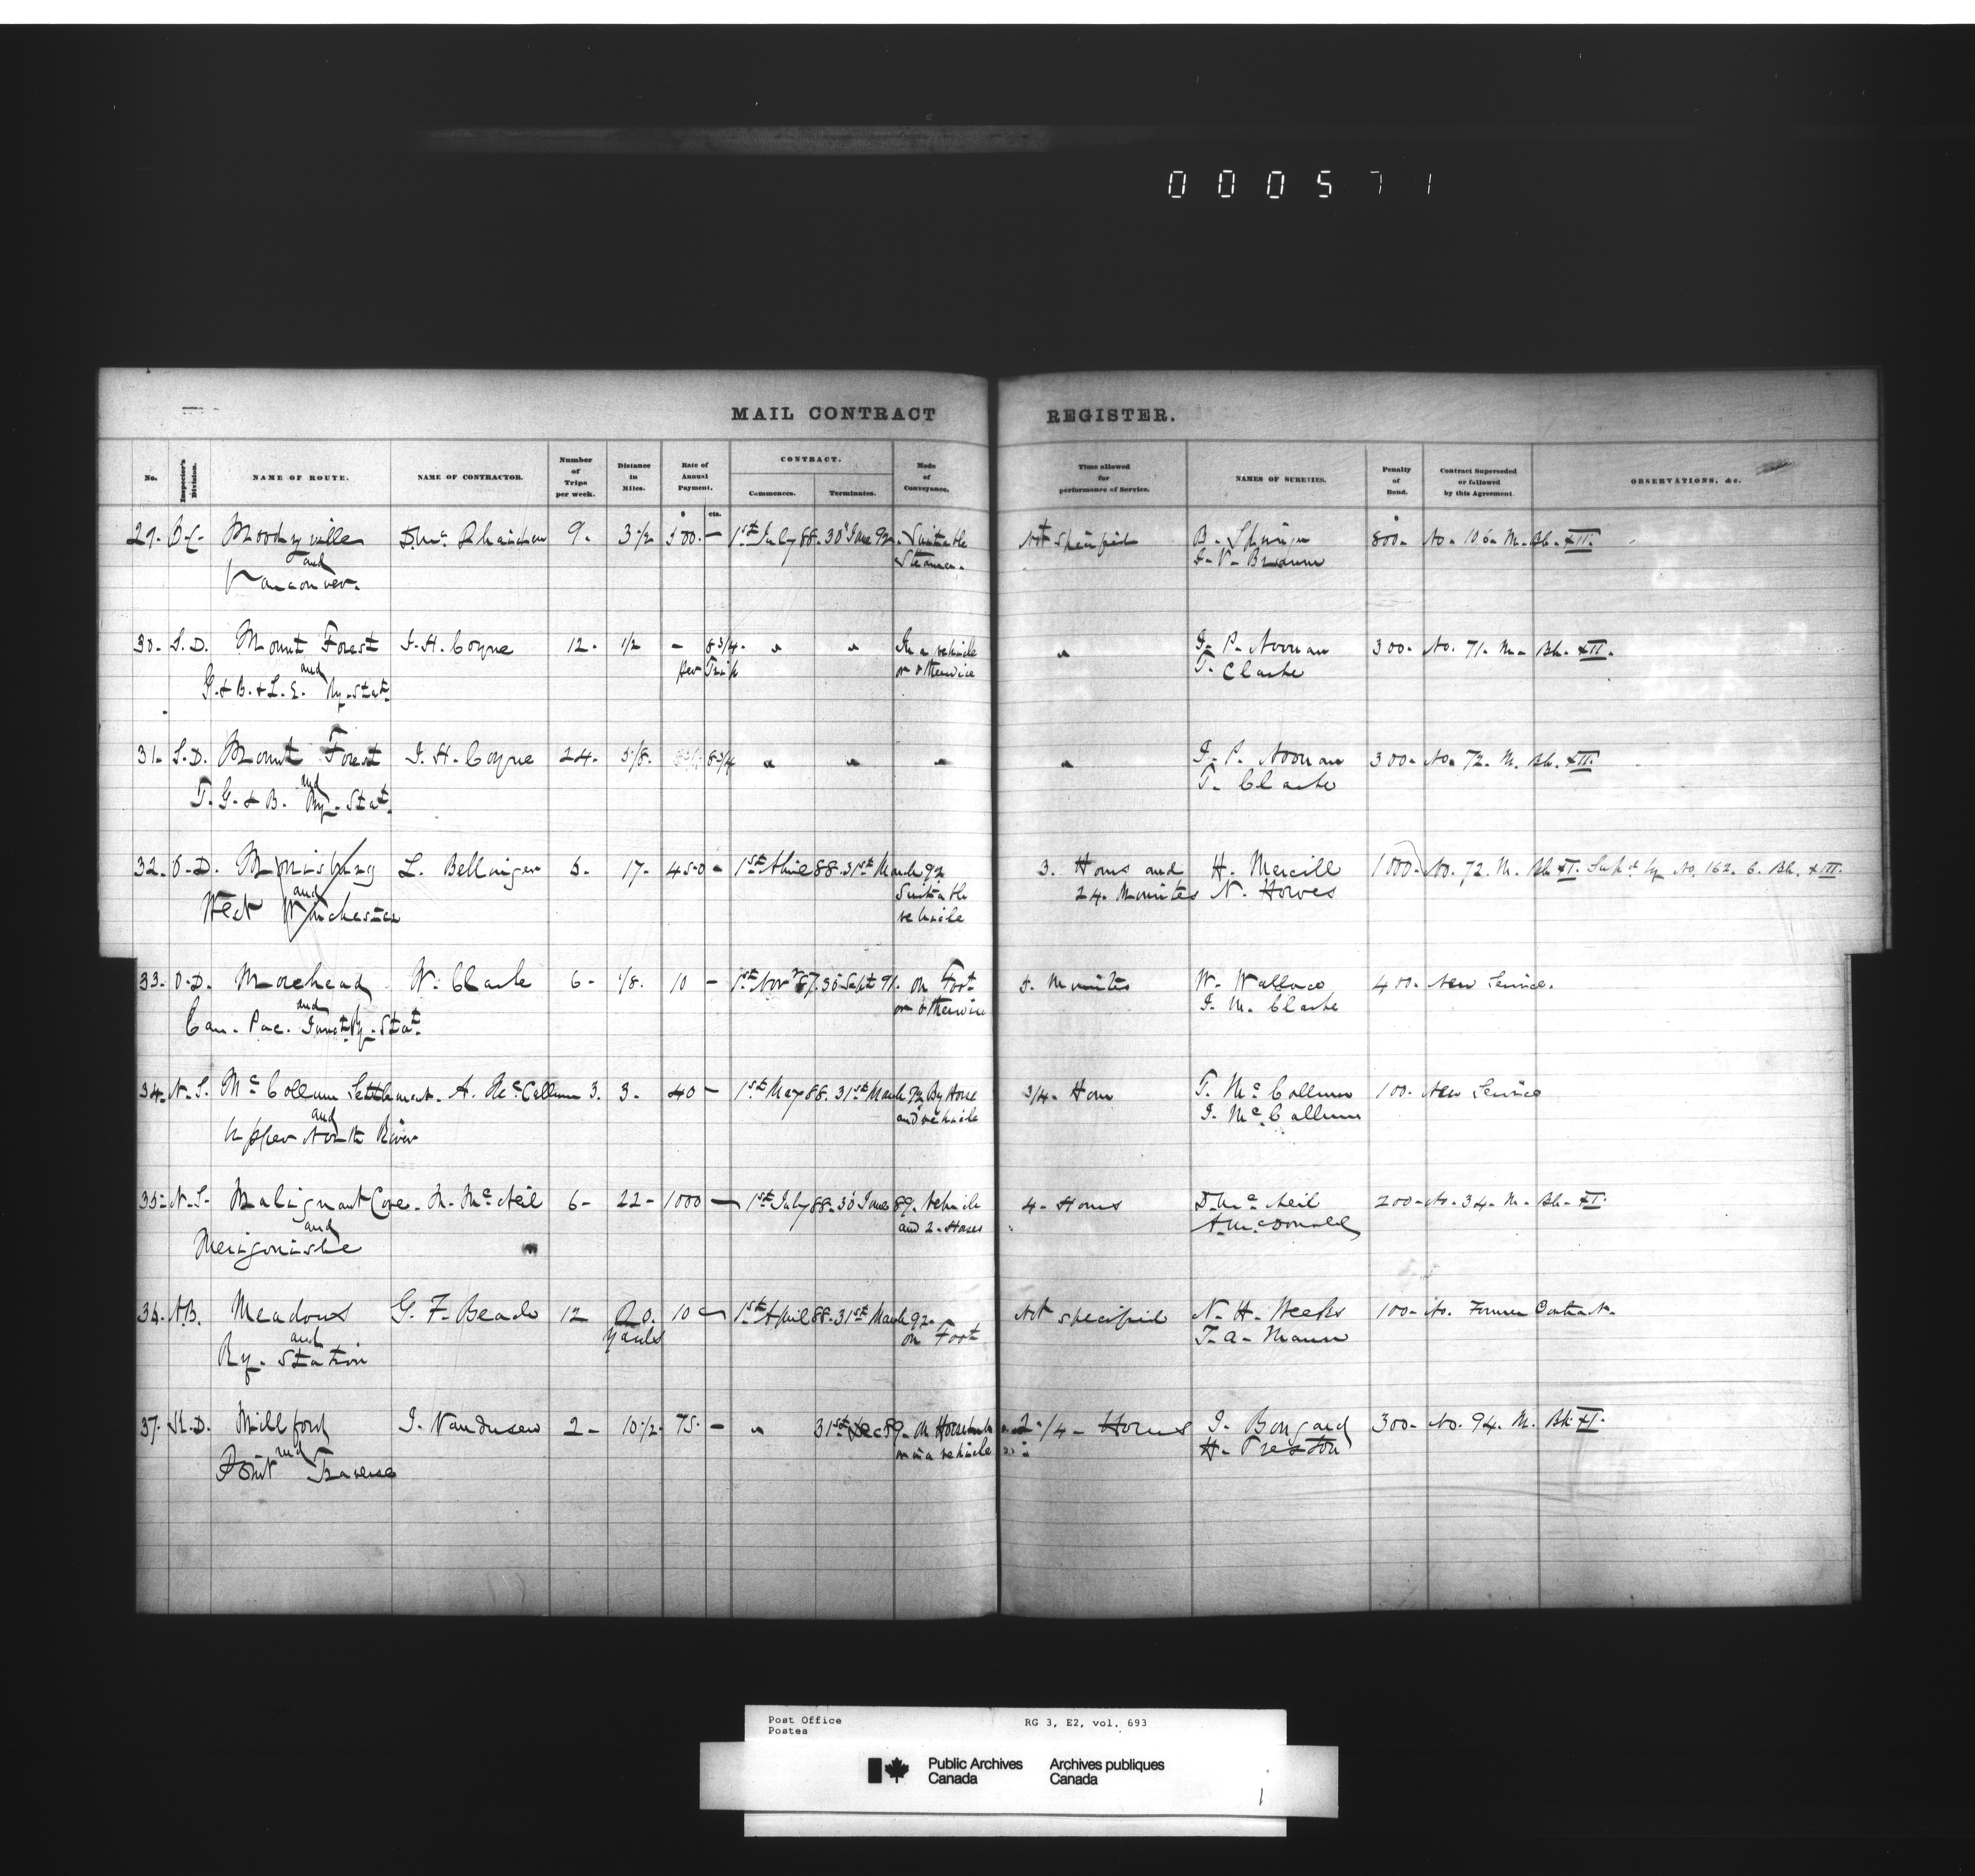 000571
MAIL CONTRACT REGISTER.
No. Inspector's Division. NAME OF ROUTE. NAME OF CONTRACTOR. Number of Trips per week. Distance in Miles. Rate of Annual Payment. CONTRACT. Commences. Terminates. Mode of Conveyance. Time allowed for performance of Service. NAMES OF SURETIES. Penalty of Bond. Contract Superseded or followed by this Agreement. OBSERVATIONS, &c.
$ cts.
29. B.C. Moodyville 9. 3 1/2 500. — 1st July 88. 30 June 92. Suitable Not specified B. Springer 800. No. 106. M. Bk. XII.
and Steamer.
Vancouver.
30. S.D. Mount Forest J. H. Coyne 12. 1/2 — 8 3/4. " " In a vehicle " J. P. Noonan 300. No. 71. M. Bk. XII.
and per Trip or otherwise T. Clarke
G. & B. & L. E. Ry. Stat.
31. S.D. Mount Forest J. H. Coyne 24. 5/8. 8 3/4 " " " " J. P. Noonan 300. No. 72. M. Bk. XII.
and T. Clarke
T. G. & B. Ry. Stat.
32. O.D. Morrisburg L. Bellinger 6. 17. 450 — 1st April 88. 31st March 92 3. Hours and H. Mercill 1000. No. 72. M. Bk. XI. Sup'd by No. 162. C. Bk. XIII.
and Suitable 24. Minutes N. Howes
West Winchester vehicle
33. O.D. Morehead W. Clarke 6 - 1/8. 10 — 1st Nov'r 87. 30 Sept 91. on Foot 5. Minutes W. Wallace 400. New Service.
and or otherwise J. M. Clarke
Can. Pac. Junct. Ry. Stat.
34. N.S. Mc Collum Settlement. A. McCallum 3. 3. 40 — 1st May 88. 31st March 92 By Horse 3/4. Hour T. McCollum 100. New Service
and and vehicle J. McCallum
Upper North River
35. N.S. Malignant Cove. M. McNeil 6 - 22 - 1000 — 1st July 88. 30 June 89. Vehicle 4. Hours D. McNeil 200. No. 34. M. Bk. XI.
and and 2. Horses A. McDonald
Merigonishe
36. N.B. Meadows 12 10 — 1st April 88. 31st March 92. Not specified N. H. Weeks 100. No. Former Contract.
and Yards on Foot T. A. Mann
Ry. Station
37. K.D. Millford J. Vandusen 2 - 10 1/2. 75. — " 31st Dec 89. On Horseback 2 1/4 - Hours J. Bongard 300. No. 94. M. Bk. XI.
and or in a vehicle H. Preston
Point Traverse
Post Office RG 3, E2, vol. 693
Postes
Public Archives Archives publiques
Canada Canada